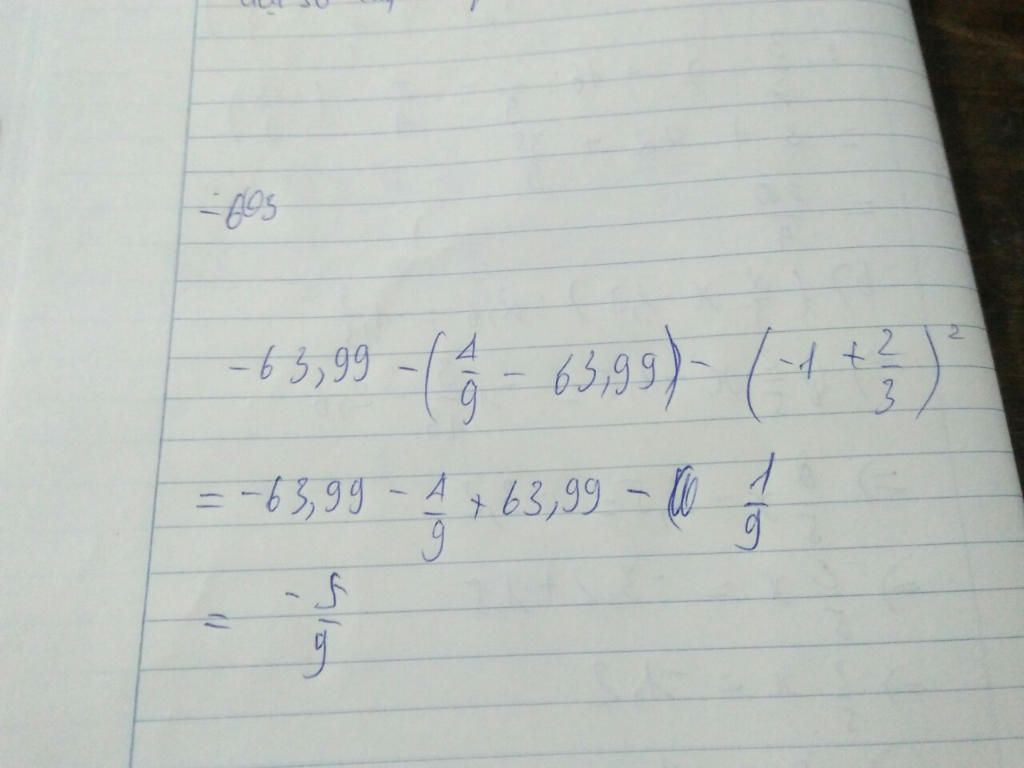 -603
-63,99 - (4/9 - 63,99) - (-1 + 2/3)²
= -63,99 - 4/9 + 63,99 - 1/9
= -5/9